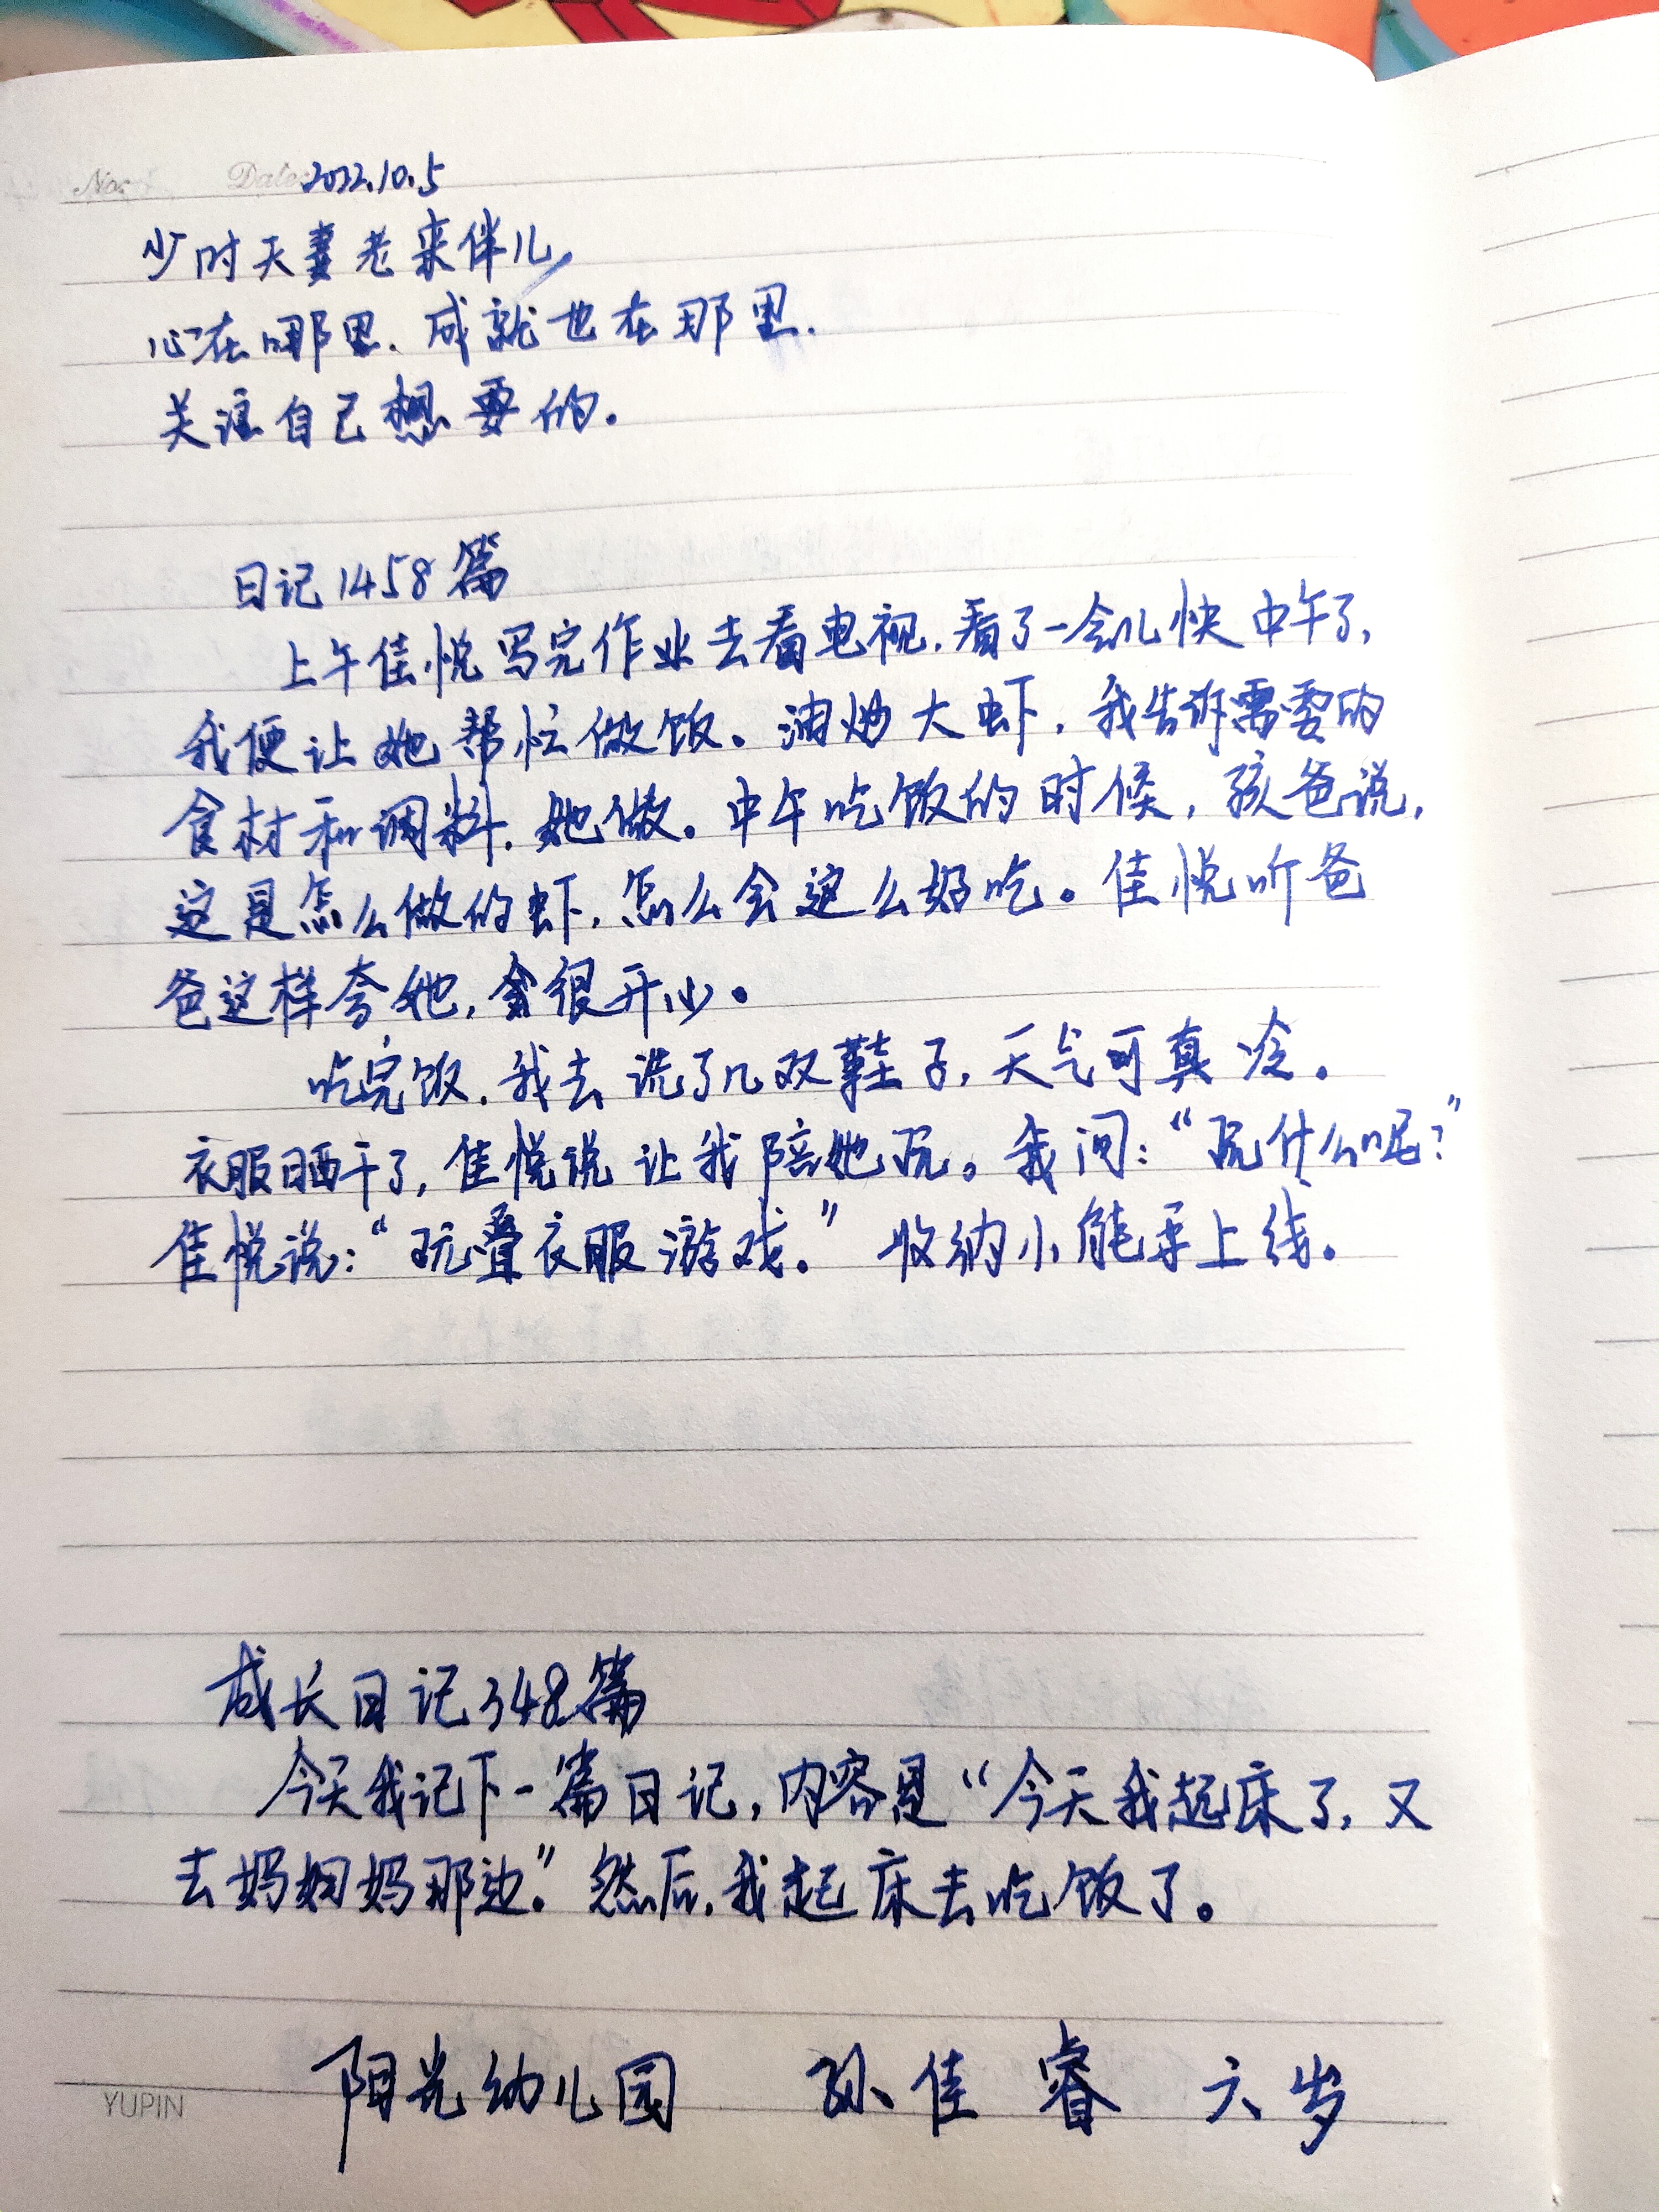 No: Date: 2022.10.5
少时夫妻老来伴儿,
心在哪里.成就也在那里.
关注自己想要的.
日记1458篇
上午佳悦写完作业去看电视.看了一会儿快中午了,
我便让她帮忙做饭。油炒大虾,我告诉需要的
食材和调料.她做。中午吃饭的时候,孩爸说,
这是怎么做的虾,怎么会这么好吃。佳悦听爸
爸这样夸她,会很开心。
吃完饭.我去洗了几双鞋子,天气可真冷。
衣服晒干了,佳悦说让我陪她玩。我问:“玩什么呢?”
佳悦说:“玩叠衣服游戏。”收纳小能手上线。
成长日记348篇
今天我记下一篇日记,内容是“今天我起床了,又
去妈妈妈那边。”然后,我起床去吃饭了。
阳光幼儿园 孙佳睿 六岁
YUPIN